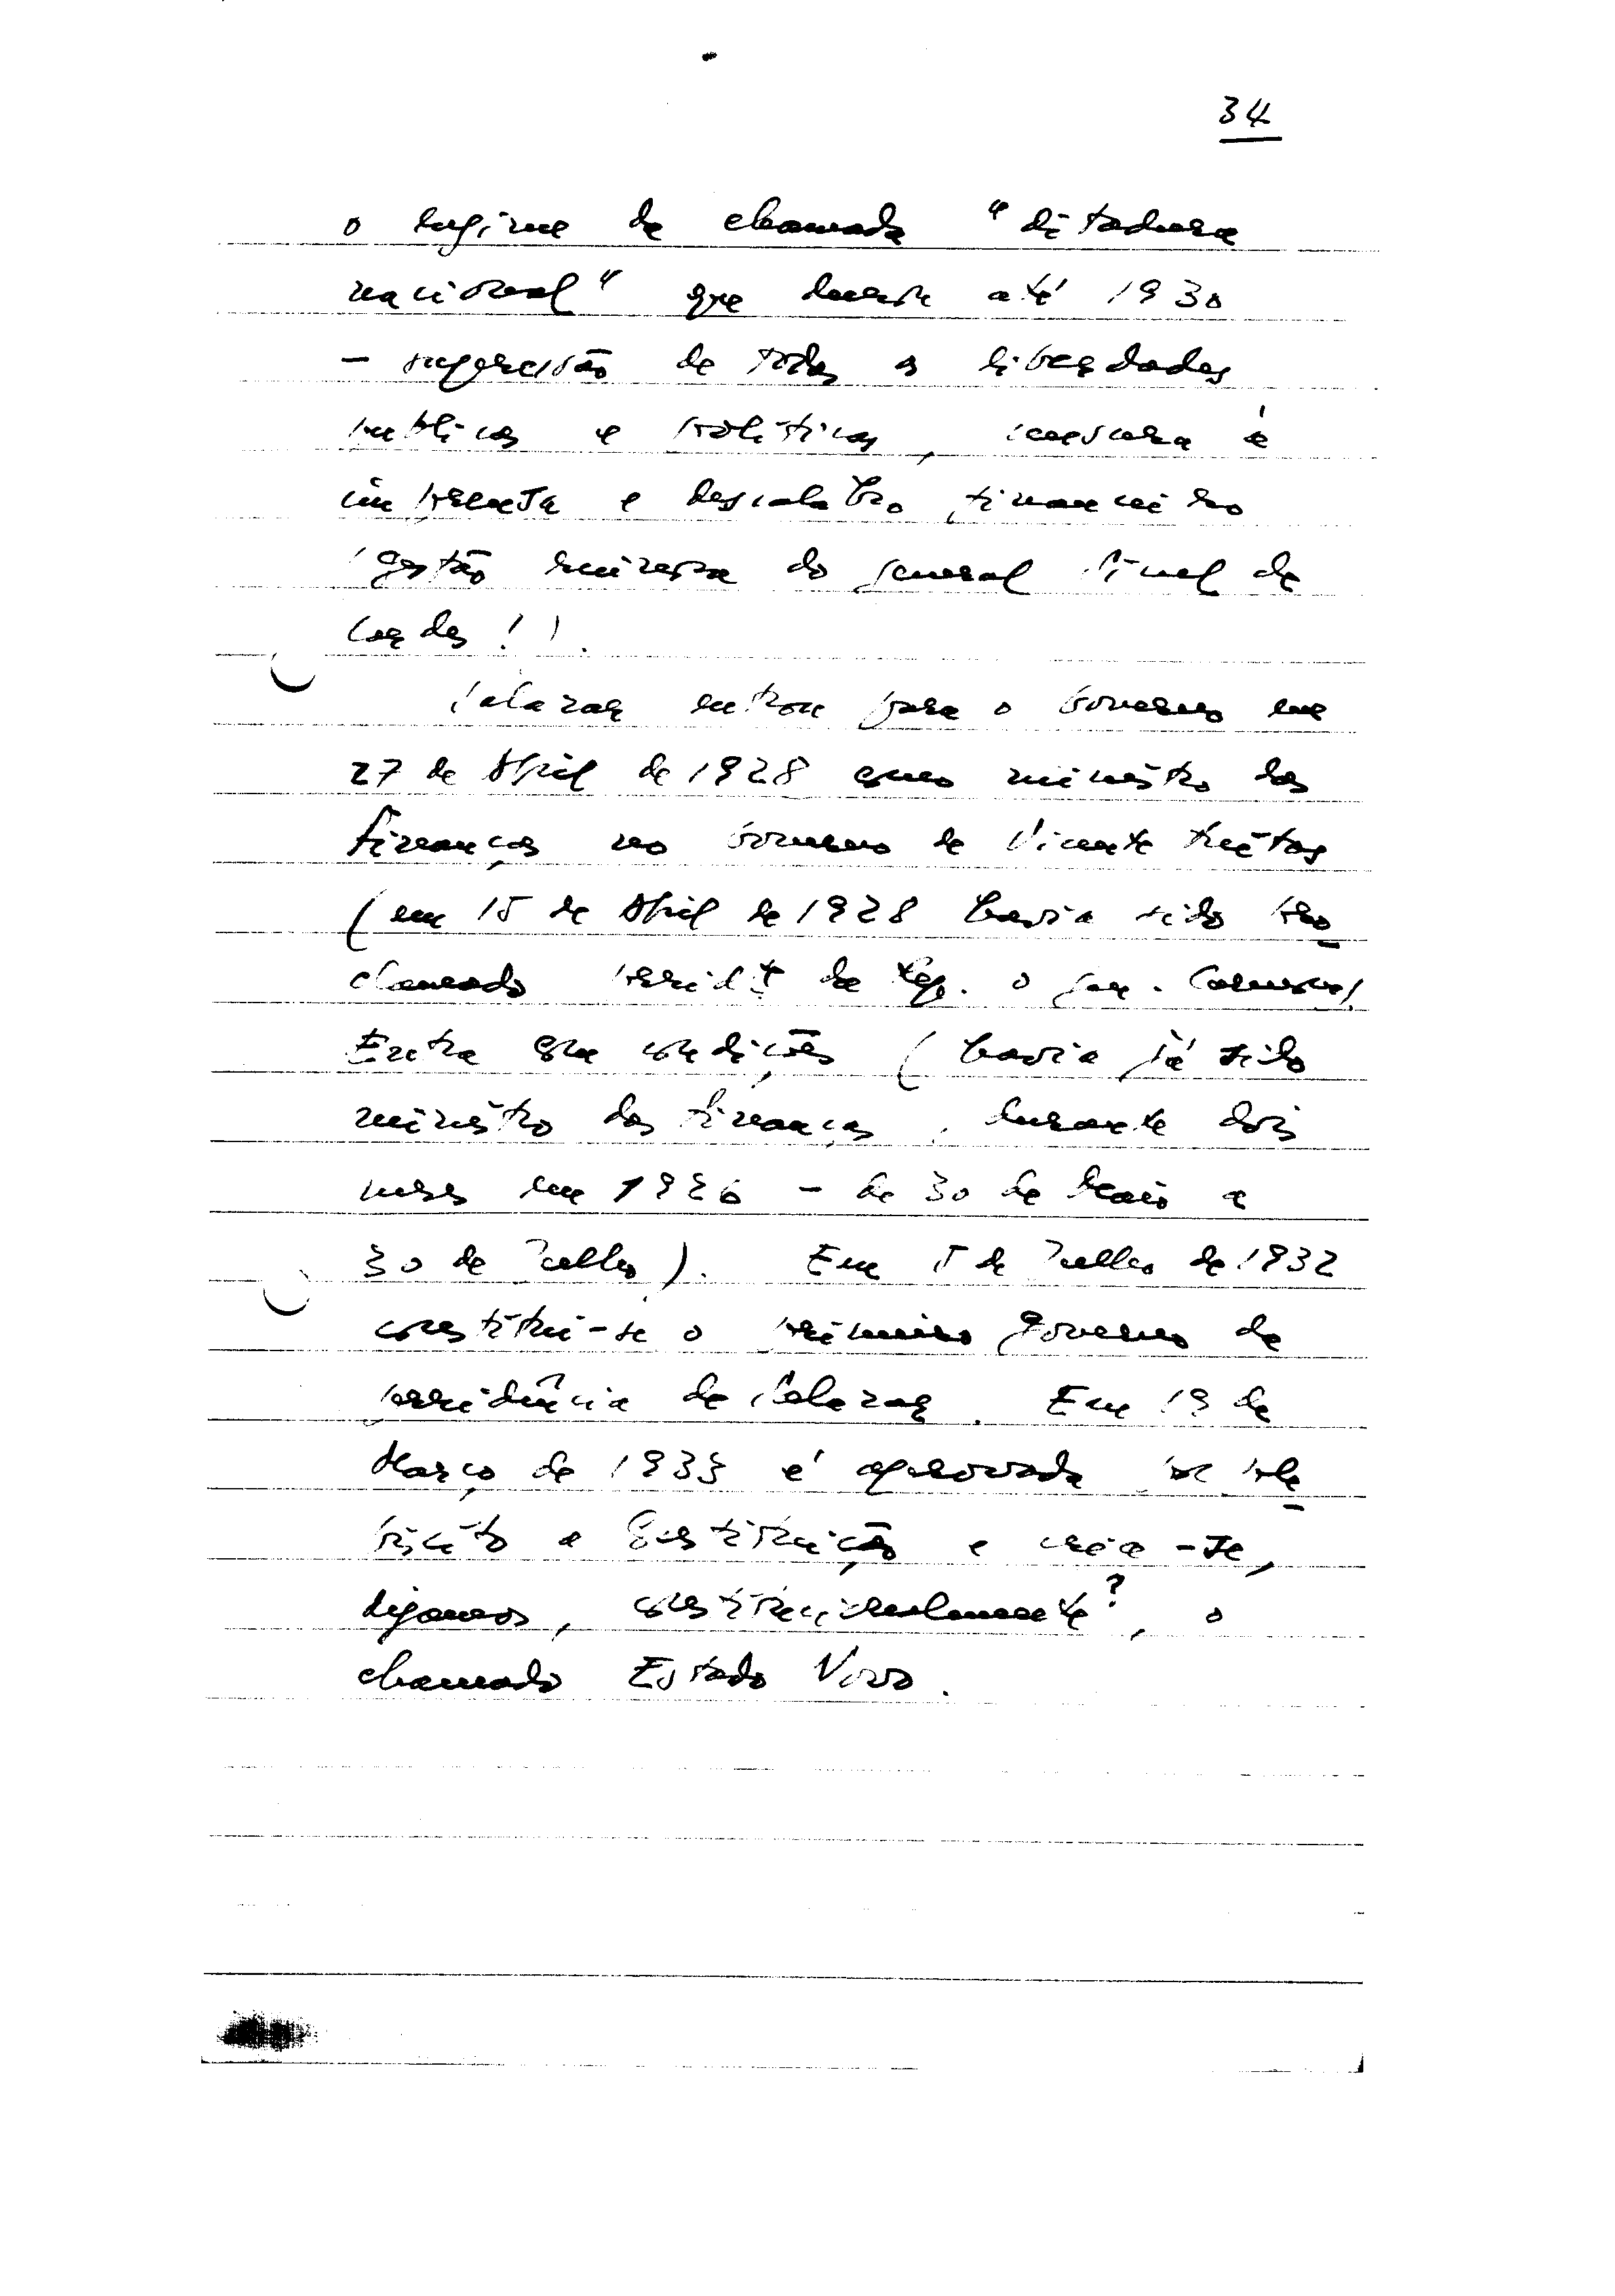 34
o regime da chamada "ditadura
nacional" que durará até 1930
- supressão de todas as liberdades
públicas e políticas, censura à
imprensa e descalabro financeiro
(gestão ruinosa do general Sinel de
Cordes!).
Salazar entrou para o Governo em
27 de Abril de 1928 como ministro das
finanças no Governo de Vicente Freitas
(em 15 de Abril de 1928 havia sido pro
clamado presidte da Rep. o gen. Carmona).
Entra com condições (havia já sido
ministro das finanças, durante dois
meses em 1926 - de 30 de Maio a
30 de Julho). Em 5 de Julho de 1932
constitui-se o primeiro governo da
presidência de Salazar. Em 19 de
Março de 1933 é aprovada por ple
biscito a Constituição e cria-se,
digamos, constitucionalmente?, o
chamado Estado Novo.